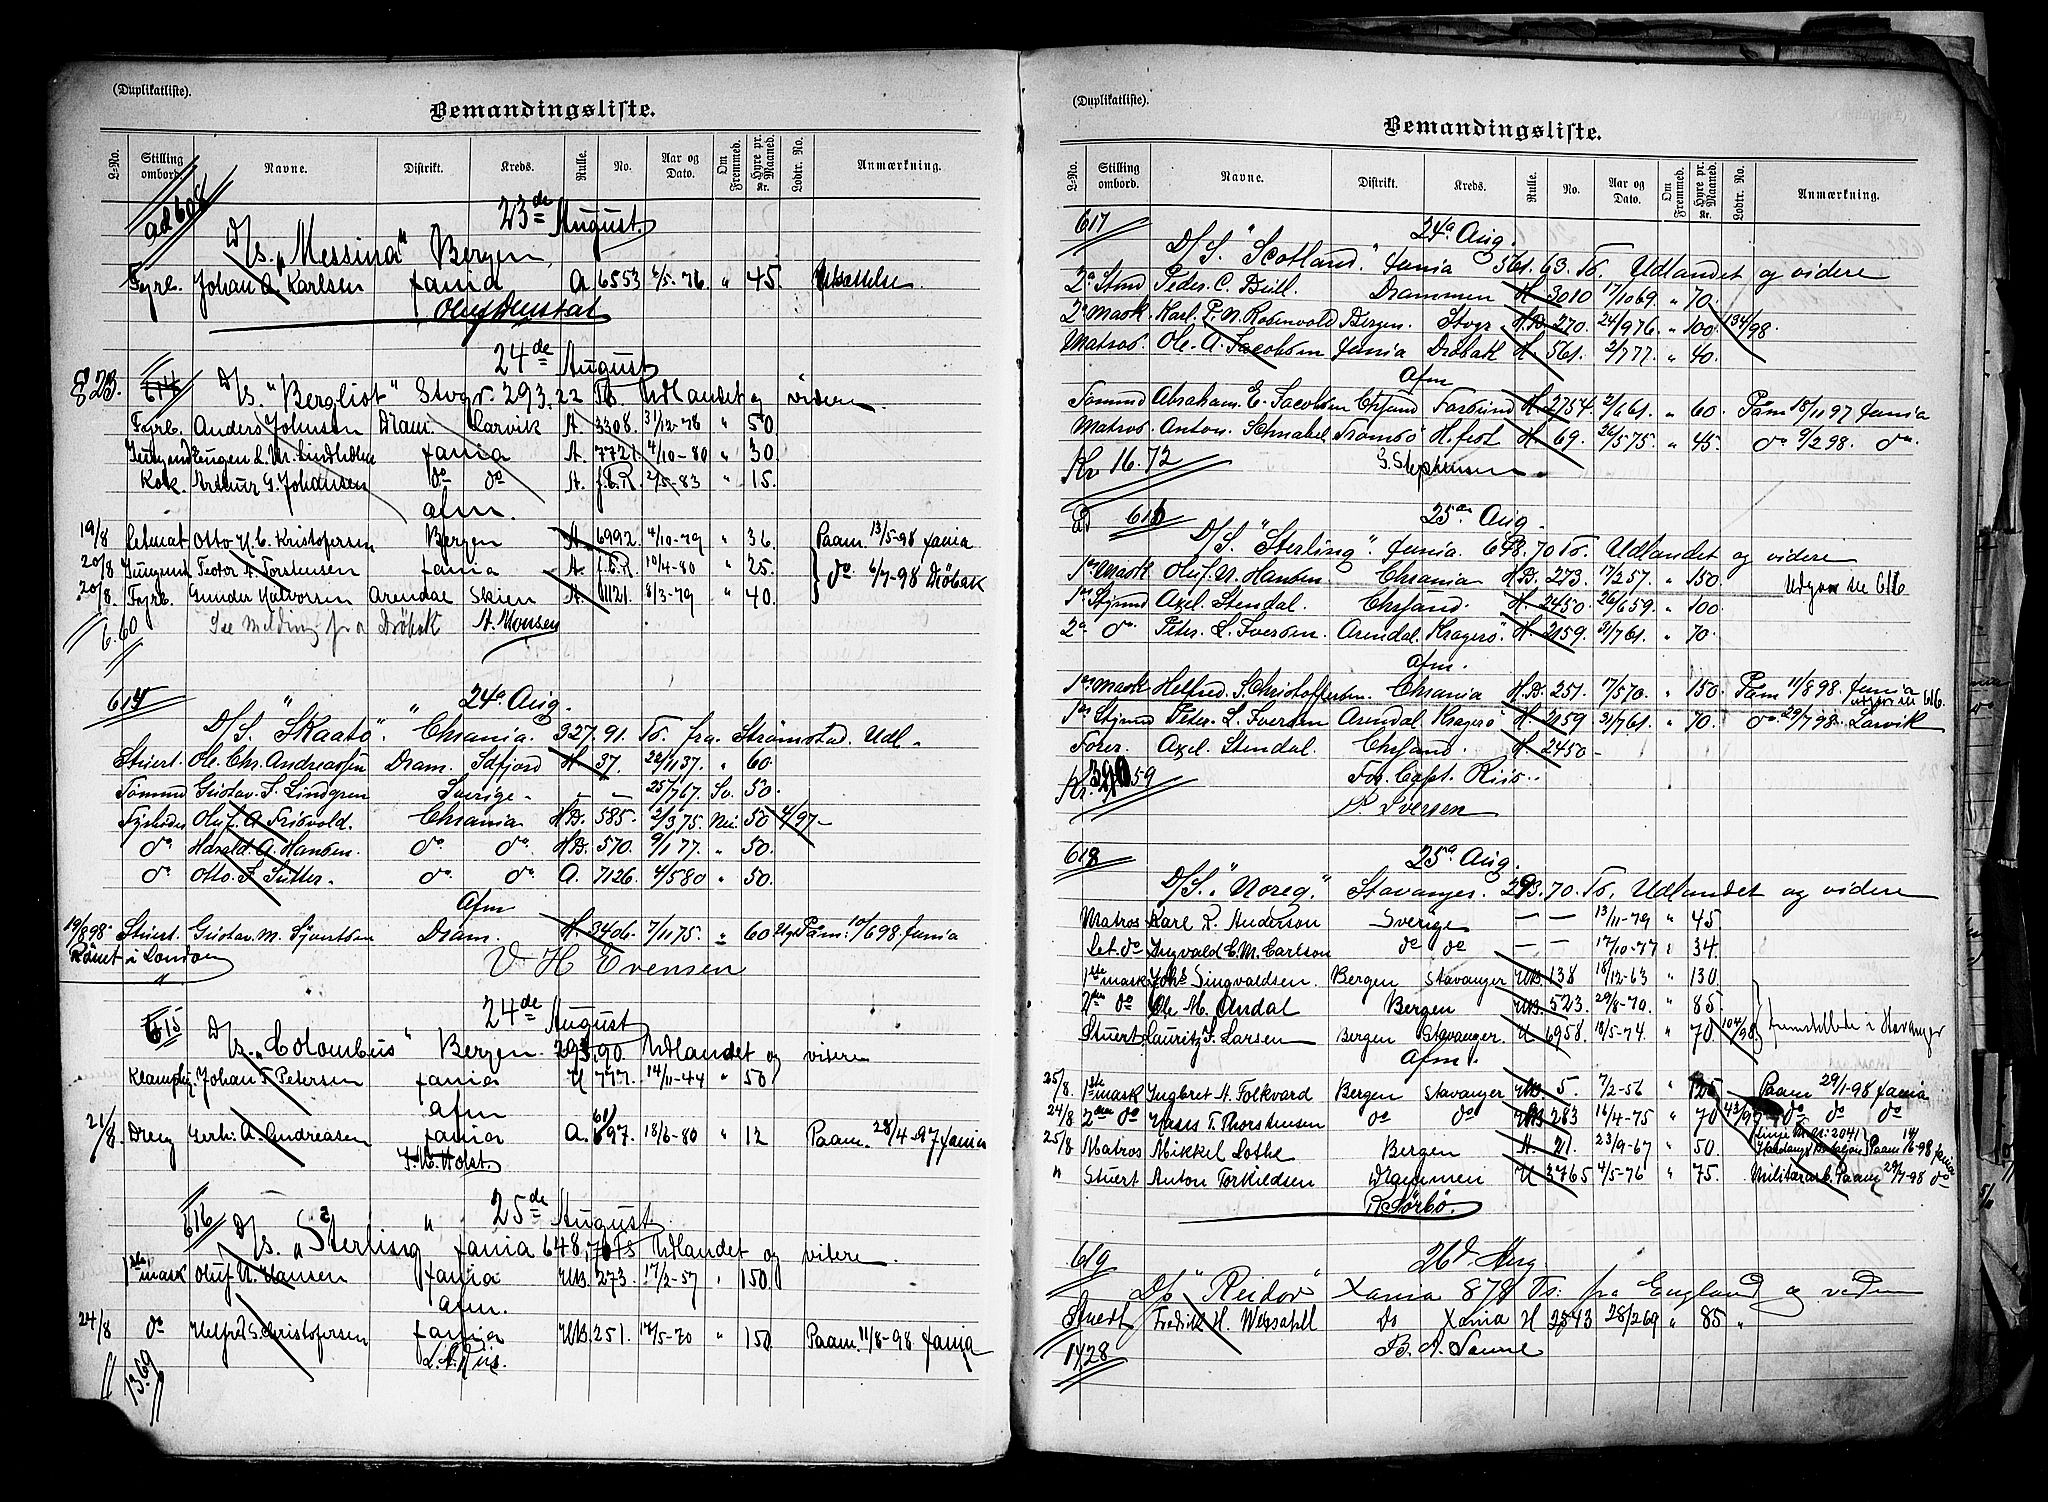 (Duplikatliste).
Bemandingsliste.
L-No. Stilling ombord. Navne. Distrikt. Kreds. Rulle. No. Aar og Dato. Om Fremmed. Hyre pr. Maaned Kr. Lodtr. No. Anmærkning.
ad 608 23de August.
D/s. "Messina" Bergen
Fyrb. Johan A. Karlsen fania A 6553 6/5-76 " 45.
24de August
823. 614 D/s. "Bergliot" Stvgr. 293.22 Ts. Udlandet og videre
Fyrb. Anders Johnsen Dram. Larvik A. 3308. 31/12-78 " 50.
fania A. 7721. 4/10-80 " 30.
Kok. Arthur G. Johansen do do A. f.C.R. 2/5-83 " 15.
afm.
19/8 Letmat Otto H. C. Kristofersen Bergen A. 6992. 4/10-79 " 36. Paam. 13/5-98 fania
20/8 Jungmd Teodor A. Torstensen fania A. f.C.R. 10/4-80 " 25. do 6/7-98 Drøbak
20/8. Fyrb. Gunder Halvorsen Arendal Skien A. 11121. 8/3-79 " 40.
6.60 See melding fra Drøbak A. Monsen
614 24a Aug.
D/S. "Skaatø". Chrania. 327.91. Ts. fra Strømstad. Udl.
Stuert. Ole. Chr. Andreassen Dram. H 37. 22/1 37. " 60.
Tømmd Gustav. F. Lindgren Sverige. – – 25/7 67. Sv. 50.
Fyrbøder Oluf. A. Frisvold. Chrania H.B. 585. 2/3 75. Nei. 50 4/97
do. Harald. A. Hansen. do. do. H.B. 570. 9/1 77. " 50.
do. Otto. F. Sutter. do. do. A. 7126. 4/5 80 " 50.
Afm
19/8 98 Stuert. Gustav. M. Syvertsen Dram. H 3406. 7/11 75. " 60 Paam. 10/6 98. fania
Rømt i London V H Evensen
24de August
615 D/s. "Colombus" Bergen. 293,90 Udlandet og videre
Johan T. Petersen fania U 777. 14/11-44 " 50
afm
21/8. Dreng Gerh. A. Andreasen fania A. 697. 18/6-80 " 12 Paam. 28/4-97 fania
J. W. Holst.
25de August
616 D/s. "Sterling" fania 648,70 Ts Udlandet og videre
1ste mask Oluf N. Hansen fania UB. 273. 17/2-57 " 150
afm.
24/8 do Helfred S. Christofersen fania UB. 251. 17/5-70 " 150 Paam. 11/8-98 fania
L. A. Riis.
13.69
(Duplikatliste).
Bemandingsliste.
L-No. Stilling ombord. Navne. Distrikt. Kreds. Rulle. No. Aar og Dato. Om Fremmed. Hyre pr. Maaned Kr. Lodtr. No. Anmærkning.
617 24a Aug.
D/S. "Scotland." fania 561.63. Ts. Udlandet og videre
2a Stmd Peder. C. Drammen H. 3010 17/10 69. " 70.
2a Mask Karl. P. N. Rosenvold Bergen. Stvgr. H.B. 270. 24/9 76. " 100. 134/98
Matros. Ole. A. Jacobsen fania Drøbak H. 561. 2/7 77. " 40.
Afm
Tømmd Abraham. E. Jacobsen Chrsand Farsund H. 2754 2/6 61. " 60. Paam 18/11 97 fania
Matros. Anton. Schnabel Tromsø H.fest H. 69. 26/5 75. " 45. do 9/2 98. do.
Kr 16.72 S. Stephensen
ad 616 25a Aug.
D/S. "Sterling". fania. 648.70 Ts. Udlandet og videre
1e Mask Oluf. N. Hansen Chrania H.B. 273. 17/2 57. " 150. Udgaar se 616
1e Stymd Axel. Stendal. Chrsand. H. 2450. 26/6 59. " 100.
2a do. Peter. L. Iversen. Arendal. Kragerø. H. 2159. 31/7 61. " 70.
Afm.
1e Mask Helfred. S. Christoffersen. Chrania H.B. 251. 17/5 70. " 150. Paam 11/8 98. fania
1e Stymd Peter. L. Iversen Arendal. Kragerø. H. 2159 31/7 61. " 70. do. 29/7 98. Larvik
Axel. Stendal. Chrsand. H. 2450
For. Capt. Riis.
P. Iversen
618 25a Aug.
D/S. "Noreg." Stavanger. 293.70. Ts. Udlandet og videre
Matros Karl R. Anderson Sverige – – 13/11-79 " 45.
Let. do Ingvald E. M. Carlson do do – – 17/10-77 " 34.
1ste mask Johs Singvaldsen. Bergen Stavanger UB. 138 18/12-63 " 130.
2den do Ole M. Aradal Bergen UB. 523. 29/8-70. " 85.
Stuert Lauritz J. Larsen Bergen Stavanger. U 6958. 18/5-74 " 70. 104/98. fremstillede i Stavanger
afm.
25/8. 1ste mask Ingbret A. Folkvard Bergen Stavanger UB. 5. 7/2-56 " 125 Paam 29/1-98 fania
24/8 2den do Hans T. Thorstensen do do UB 283 16/4-75 " 70 43/97 do do do
25/8 Matros Mikkel Lothe Bergen A. 21. 23/9-67 " 50 Linje M.Nr: 2041 Paam 14/6-98 fania
" Stuert Anton Torkildsen Drammen U 3765 4/5-76 " 75. Militærarb. Paam 29/7-98 do
R. Sørbø.
619 26d Aug.
D/s "Reidar" Xania 878 Ts. fra England og videre
Stuedt Fredrik H. Do Xania H 2843 28/2 69 " 85 "
14.28